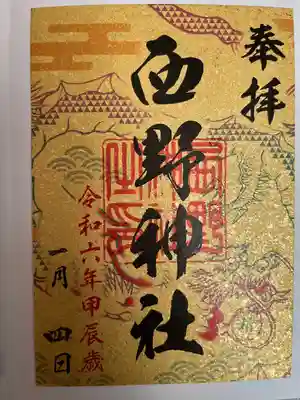 奉拝
西野神社
令和六年甲辰歳
一月 四日